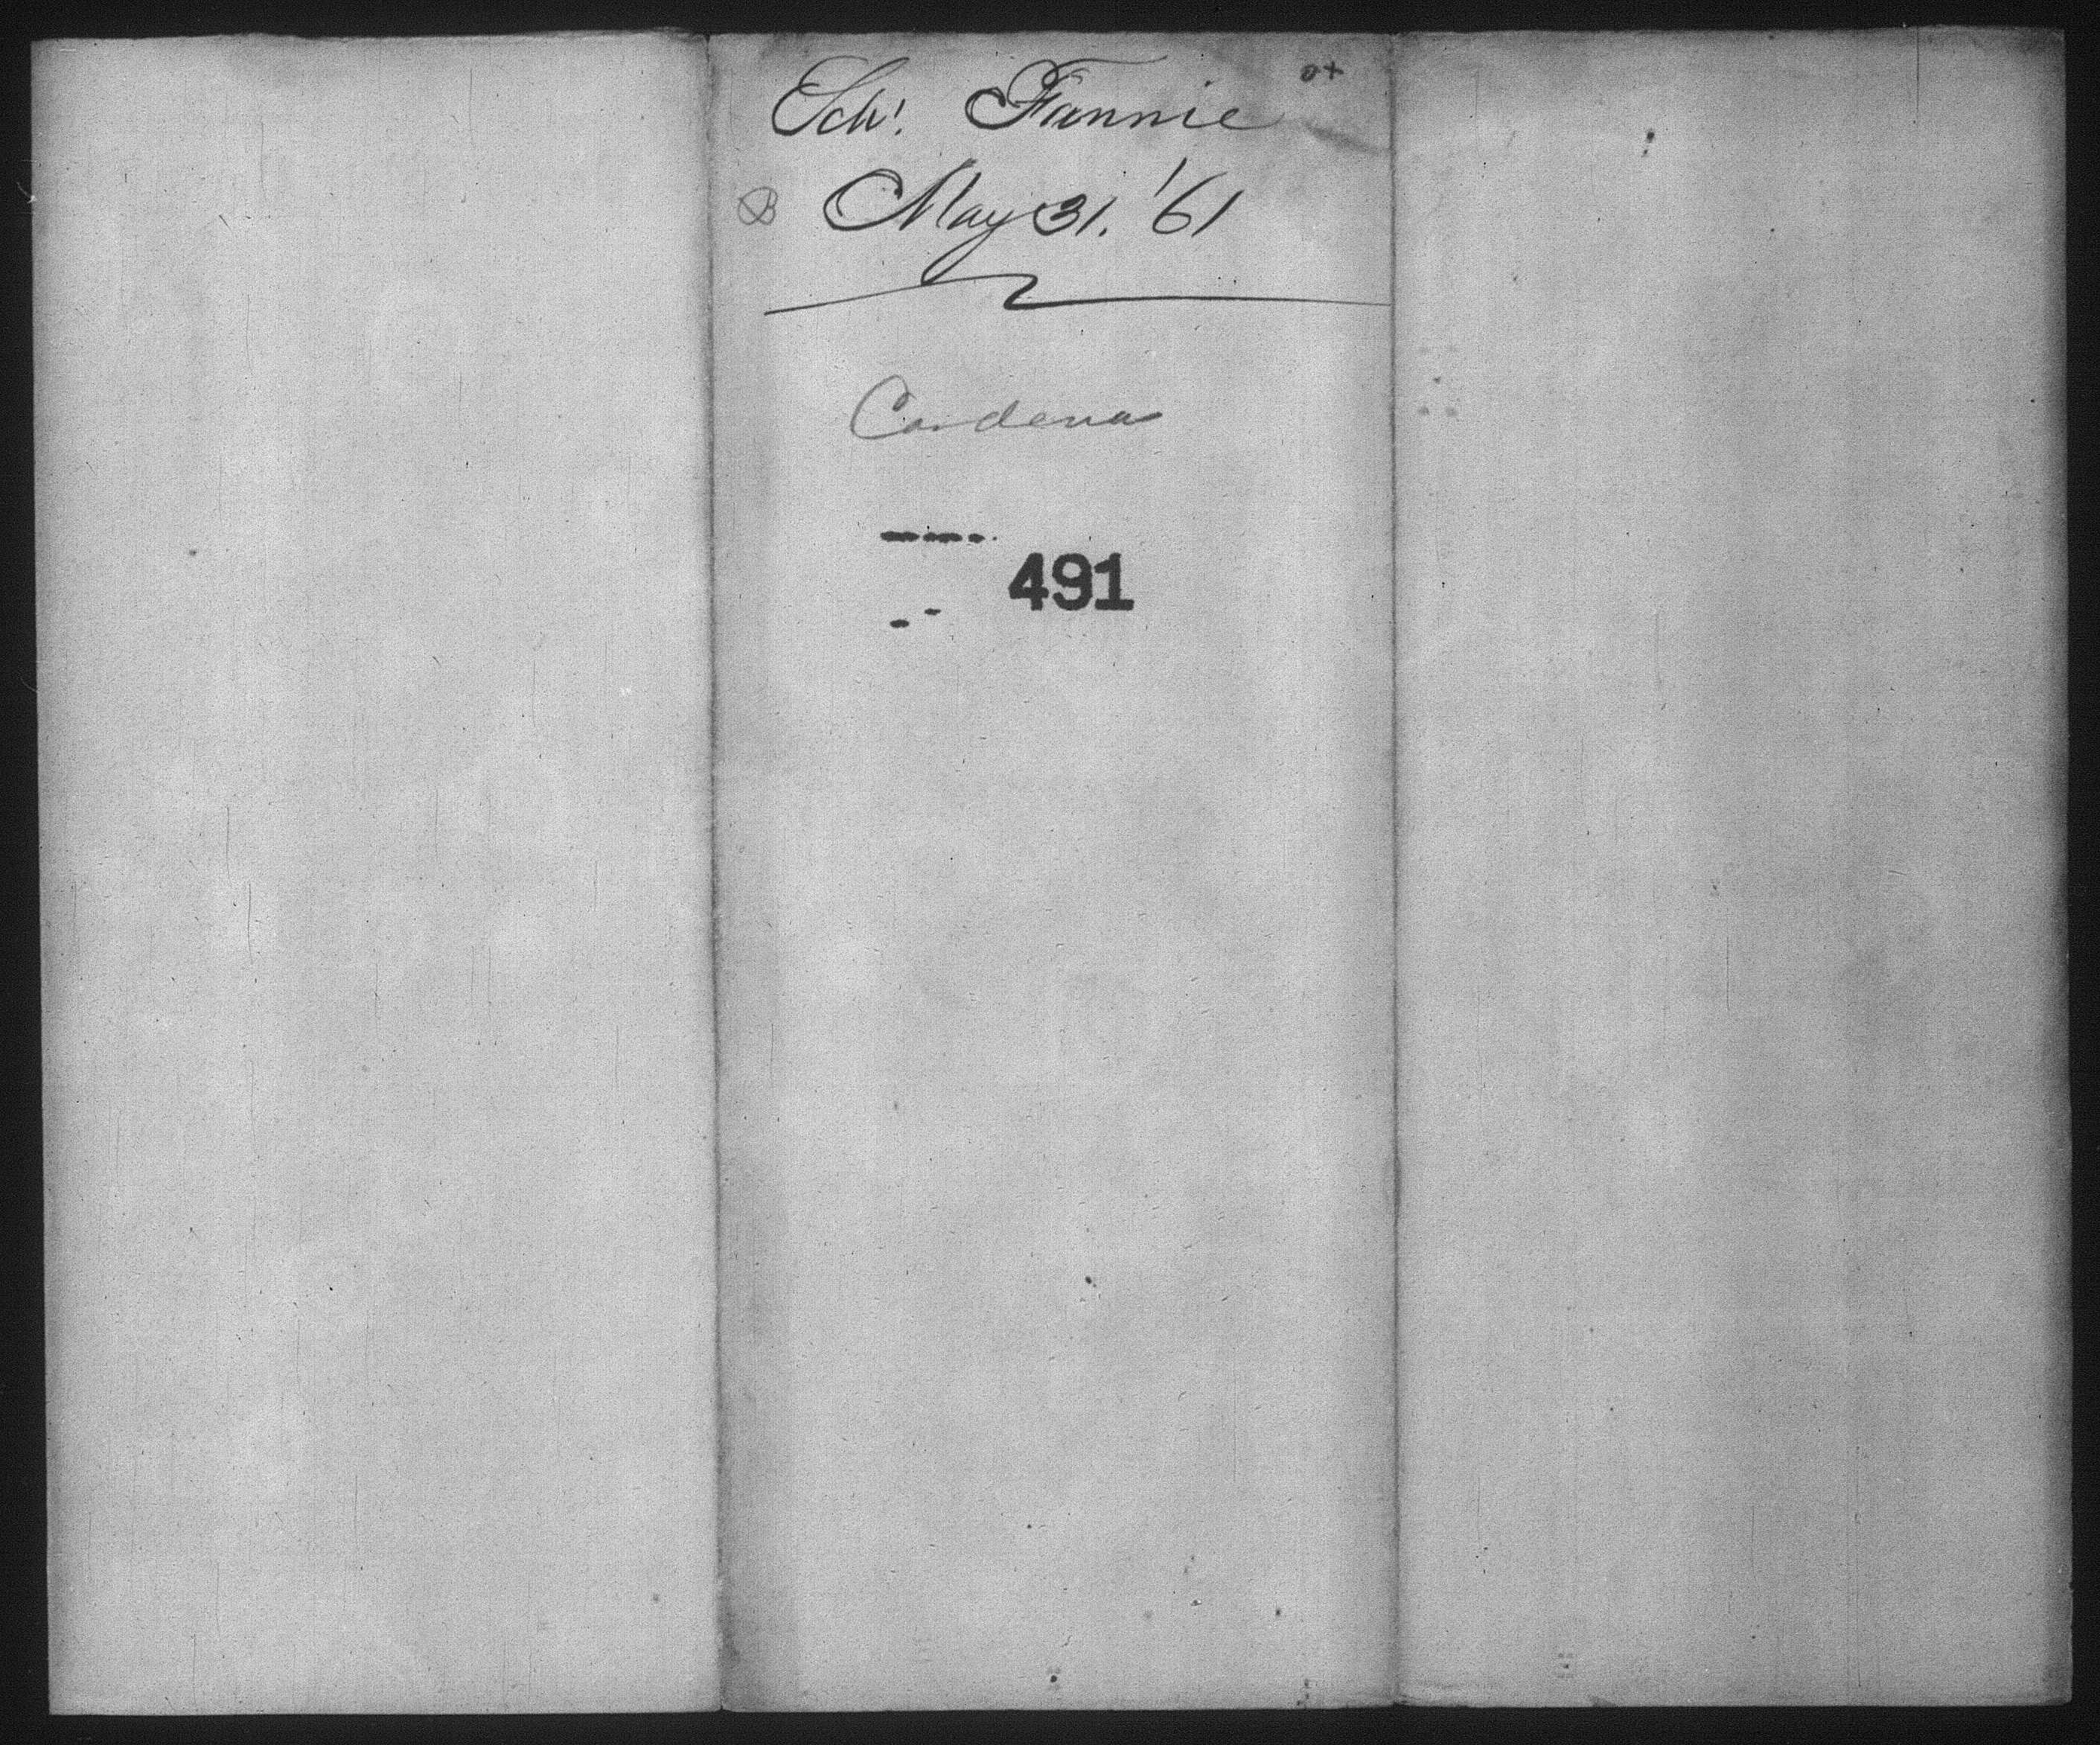 Sch'. Fannie
May 31. '61
Cardenas
491